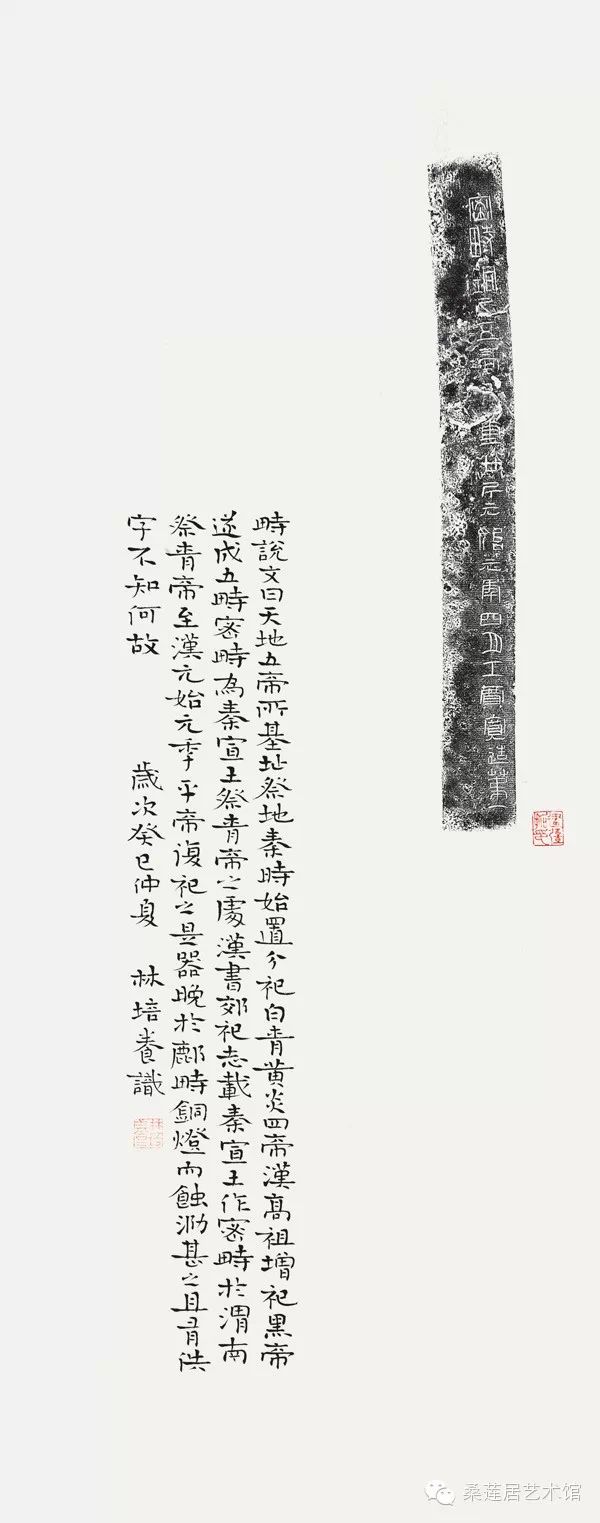 密畤銅五重斤元始元年四月工賈寶造第一
畤說文曰天地五帝所基址祭地秦畤始置分祀白青黄炎四帝漢高祖增祀黑帝
遂成五畤密畤為秦宣王祭青帝之處漢書郊祀志載秦宣王作密畤於渭南
祭青帝至漢元始元年平帝復祀之是器晚於鄜畤銅燈而蝕泐甚之且有供
字不知何故 歲次癸巳仲夏 林培養識
桑莲居艺术馆